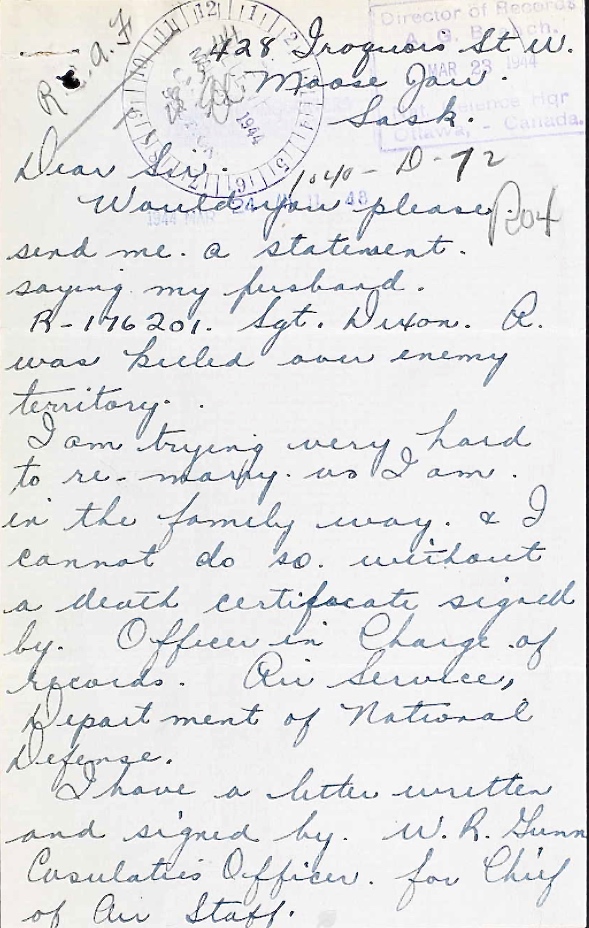 R.C.A.F
Director of Records
A. G. Branch.
MAR 23 1944
Defence Hqr
Ottawa, - Canada.
12 1 2
1944
428 Iroquois St W.
Moose Jaw.
Sask.
Dear Sir.
1040 - D - 72
1944 MAR 24
R04
Would you please.
send me. a statement.
saying my husband.
R-176201. Sgt. Dixon. A.
was killed over enemy
territory.
I am trying very hard
to re-marry. as I am.
in the family way. & I
cannot do so. without
a death certificate signed
by. Officer in Charge of
records. Air Service,
Department of National
Defense.
I have a letter written
and signed by. W. R. Gunn
Casulaties Officer. for Chief
of Air Staff.